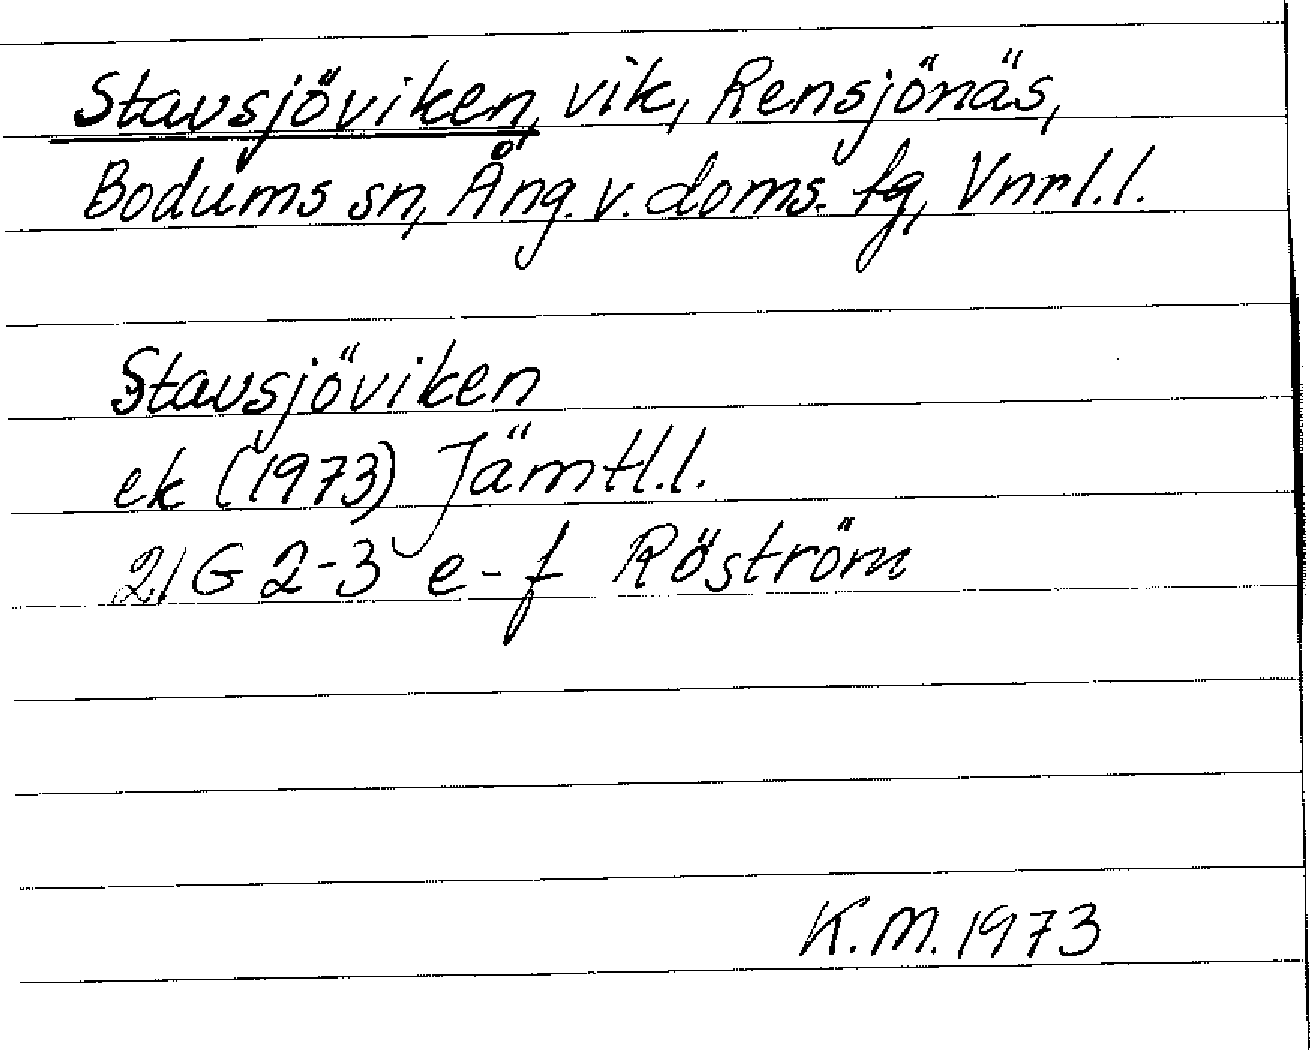 Stavsjöviken, vik, Rensjönäs,
Bodums sn, Ång. v. doms. fg, Vnrl.l.
Stavsjöviken
ek (1973) Jämtl.l.
21G 2-3 e-f Röström
K.M. 1973